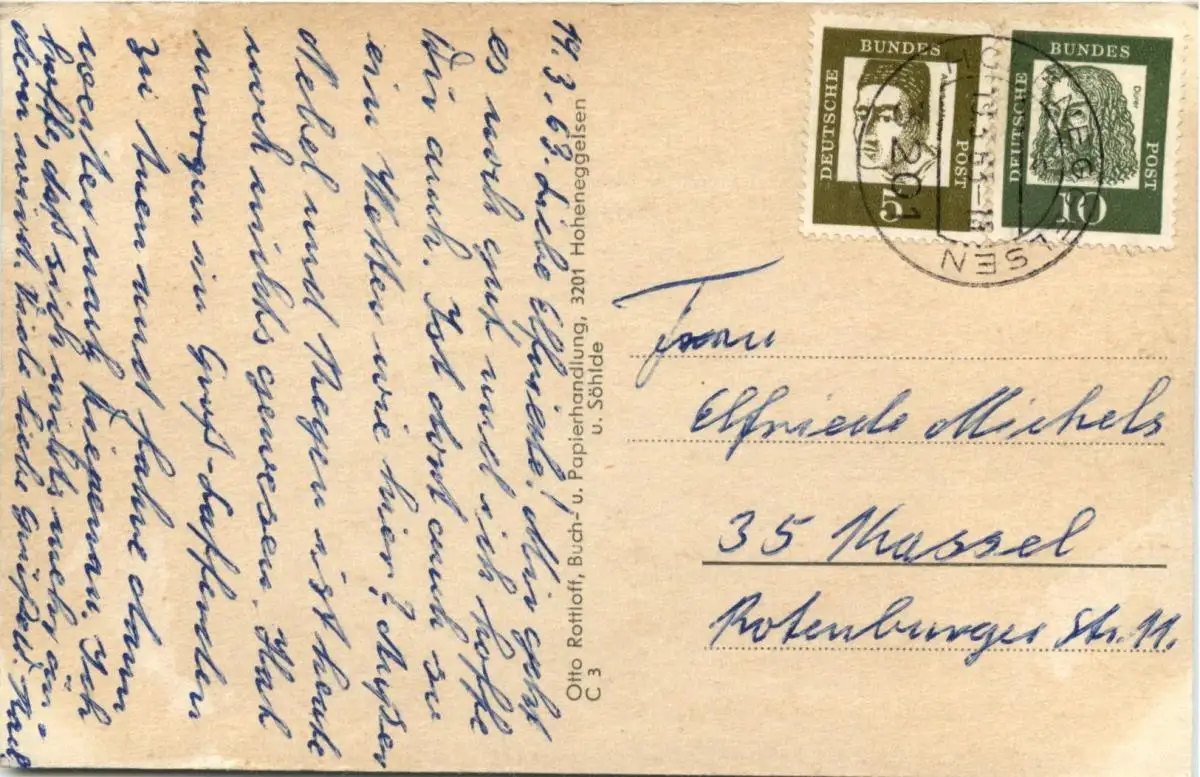 14.3.63. Liebe Elfriede! Mir geht
es noch gut und ich hoffe
Dir auch. Ist dort auch so
ein Wetter wie hier? Außer
Nebel und Regen ist heute
noch nichts gewesen. Hab
morgen in Groß-Lafferde
zu tuen und fahre dann
weiter nach Hiepenau. Ich
hoffe, daß sich nichts mehr än-
dern wird. Viele liebe Grüße
Otto Rottloff, Buch- u. Papierhandlung, 3201 Hoheneggelsen
u. Söhlde
C 3
DEUTSCHE BUNDESPOST
5
DEUTSCHE BUNDESPOST
Dürer
10
HOHENEGGELSEN
3201
Frau
Elfriede Michels
35 Kassel
Rotenburger Str. 11.